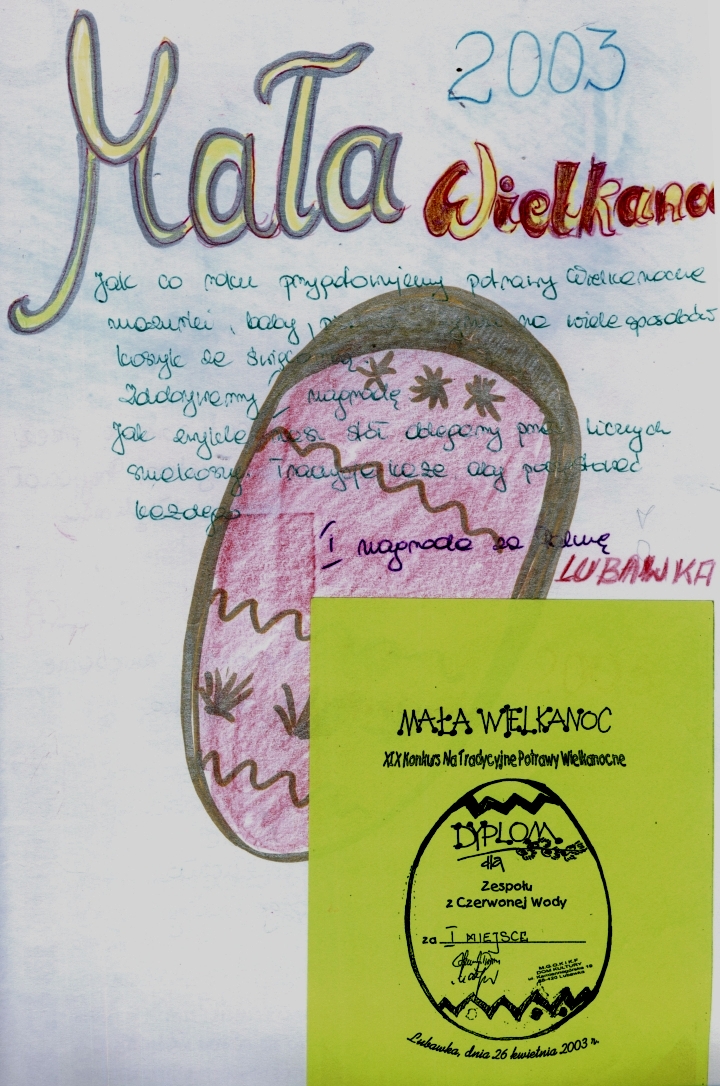 2003
Mała
Wielkano
Jak co roku przygotowujemy potrawy Wielkanocne
mazurki, baby, na wiele sposobów
koszyk ze
Zdobywamy I nagrodę
Jak zwykle nasz stół oblegany przez licznych
smakoszy. Tradycja każe aby poczęstować
każdego
I nagroda za
LUBAWKA
MAŁA WIELKANOC
XIX Konkurs Na Tradycyjne Potrawy Wielkanocne
DYPLOM
dla
Zespołu
z Czerwonej Wody
za I MIEJSCE
M.G.O.K.I.K.F
DOM KULTURY
ul. Kamiennogórska 19
58-420 Lubawka
Lubawka, dnia 26 kwietnia 2003 r.